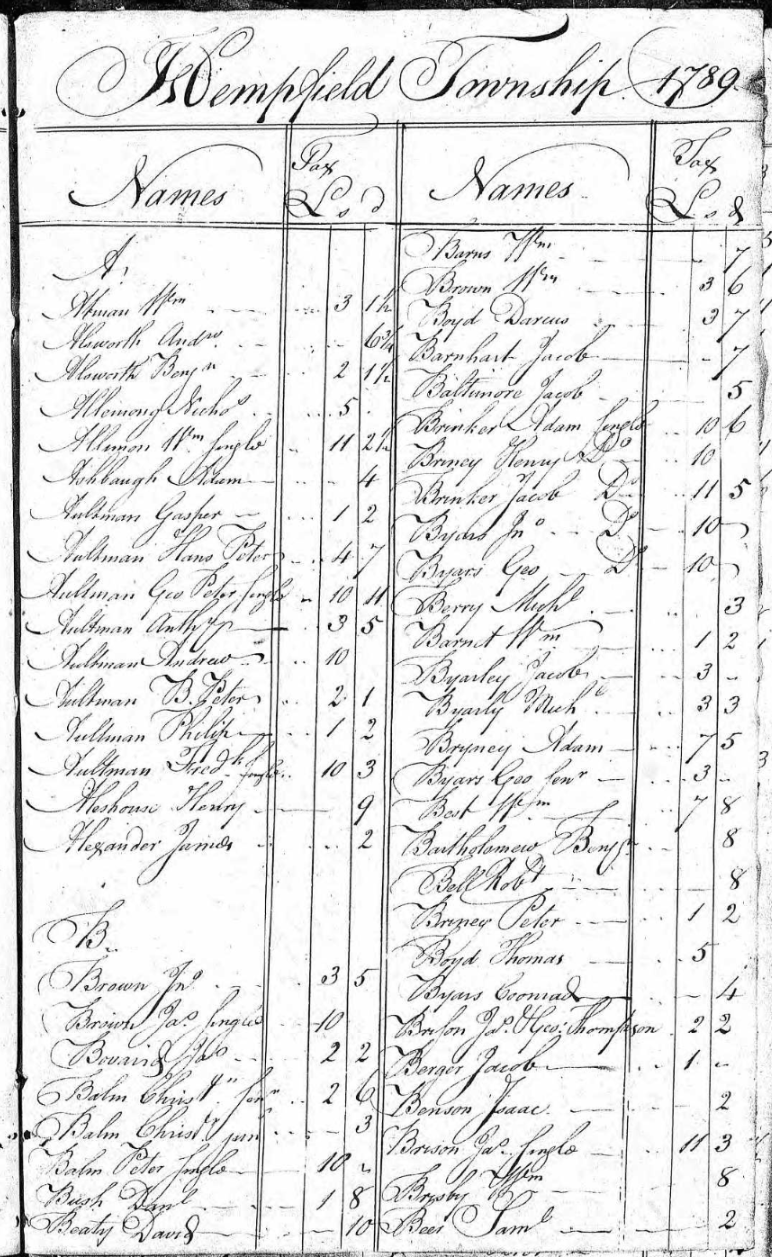 Hempfield Township 1789
Names Tax
L s d
A,
Altman Wm 3 1½
Alsworth Andw 6¾
Alsworth Benjn 2 1½
Allemong Nichos 5
Allimon Wm Single 11 2½
Ashbaugh Adam 4
Aultman Gasper 1 2
Aultman Hans Peter 4 7
Aultman Geo Peter Single 10 11
Aultman Anthy 3 5
Aultman Andrew 10
Aultman B. Peter 2 1
Aultman Philip 1 2
Aultman Fredk Single 10 3
Aleshouse Henry 9
Alexander James 2
B
Brown Jno 3 5
Brown Jas Single 10
Bovaird Jas 2 2
Balm Christr Senr 2 6
Balm Christr jun 3
Balm Peter Single 10
Bush Danl 1 8
Beaty David 10
Names Tax
L s d
Barns Wm 7
Brown Wm 3 6
Boyd Darcus 3 7
Barnhart Jacob 7
Baltimore Jacob 5
Brinker Adam Single 10 6
Briney Henry Do 10
Brinker Jacob Do 11 5
Byars Jno Do 10
Byars Geo Do 10
Berry Michl 3
Barnet Wm 1 2
Byarley Jacob 3
Byarly Mich 3 3
Bryney Adam 7 5
Byars Geo Senr 3
Best Wm 7 8
Bartholomew Benjn 8
Bell Robt 8
Briney Peter 1 2
Boyd Thomas 5
Byars Coonrad 4
Brison Jas & Geo. Thompson 2 2
Berger Jacob 1
Benson Isaac 2
Brison Jas Single 11 3
Brisby Wm 8
Beer Saml 2